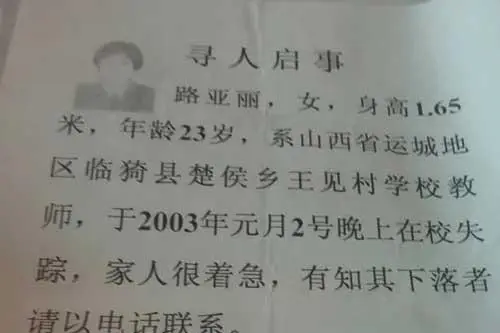 寻人启事
路亚丽，女，身高1.65
米，年龄23岁，系山西省运城地
区临猗县楚侯乡王见村学校教
师，于2003年元月2号晚上在校失
踪，家人很着急，有知其下落者
请以电话联系。